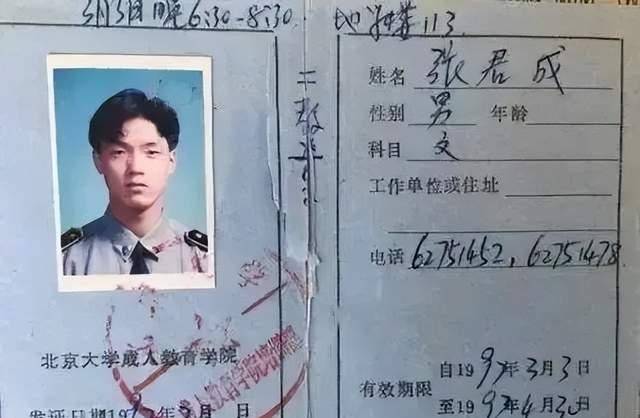 3月3日晚6:30-8:30. 地学楼113
二教
姓名 张君成
性别 男 年龄
科目 文
工作单位或住址
电话 62751452, 62751478
北京大学成人教育学院
自1997年3月3日
有效期限
至1997年4月30
发证日期1997年3月 日
人教育学院培训